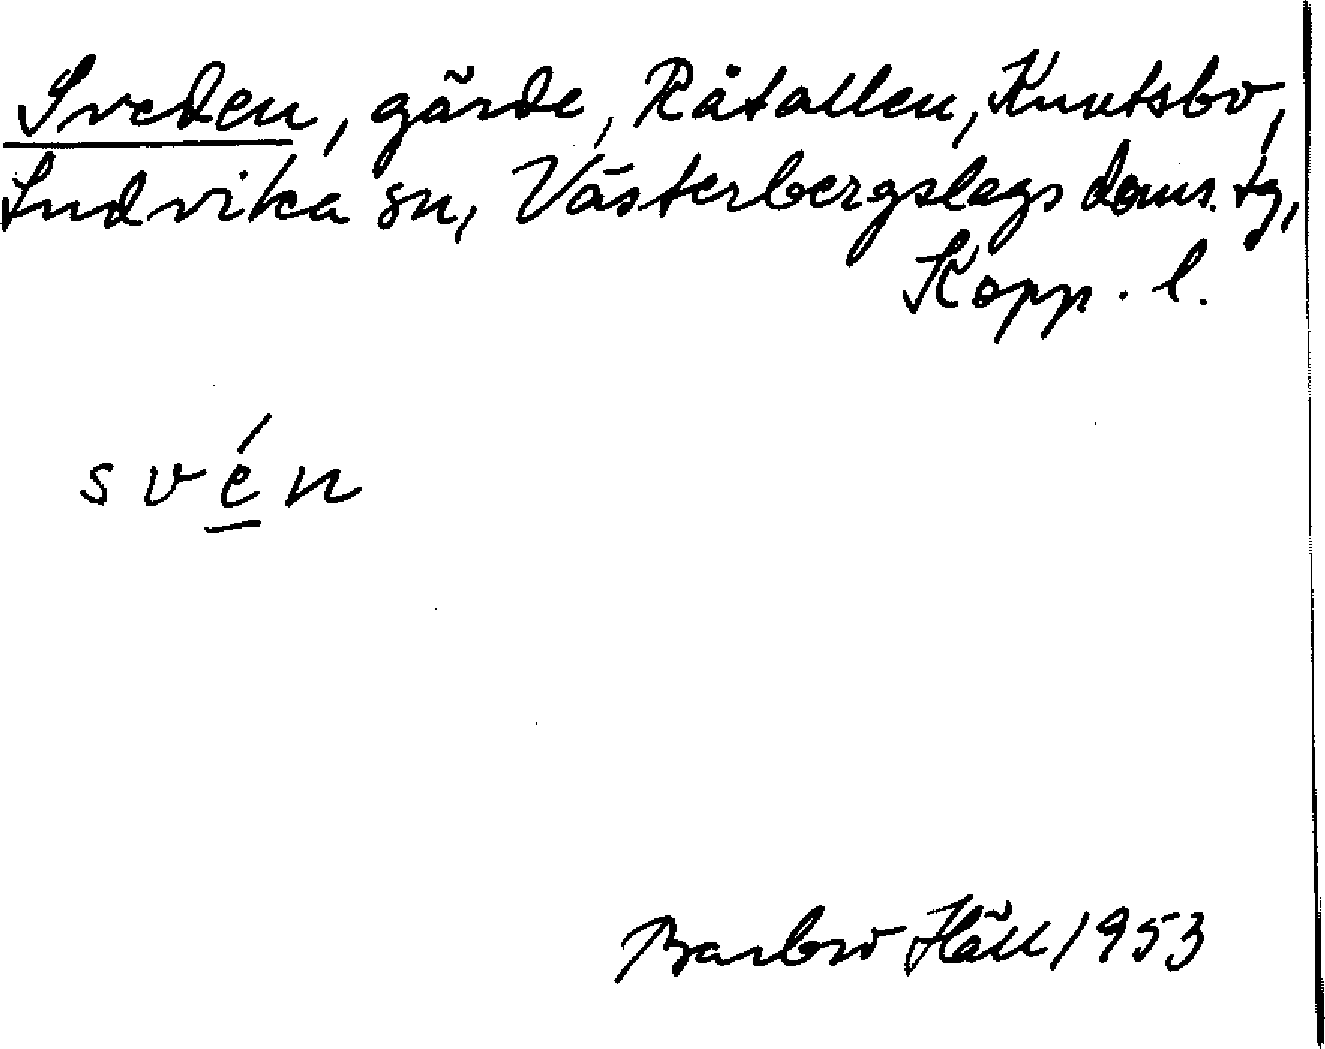 Sveden, gärde, Råtallen, Knutsbo,
Ludvika sn, Västerbergslags doms. tg,
Kopp. l.
svén
Barbro Häll 1953